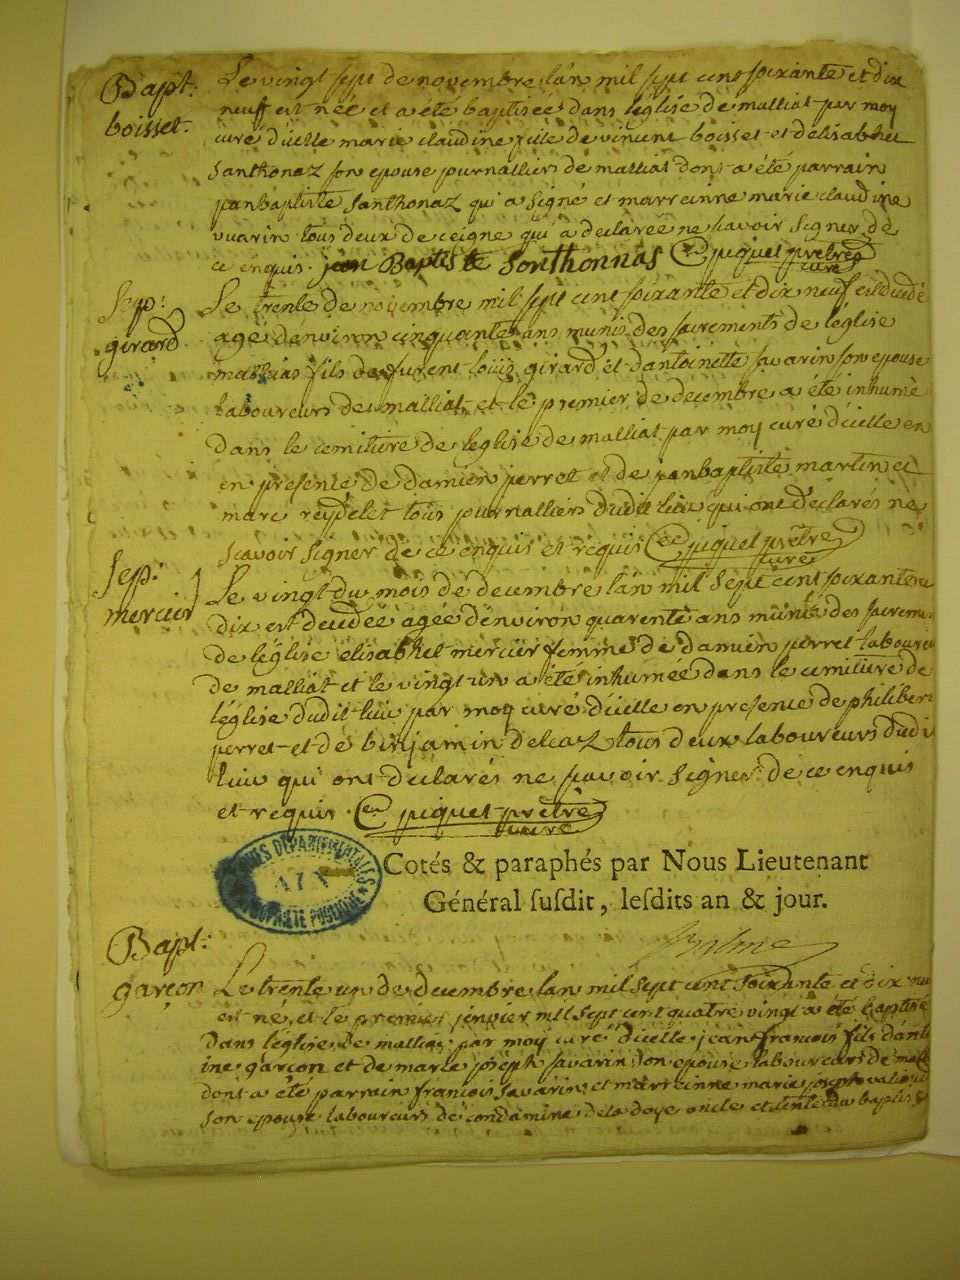 Bapt:
boisset.
Le vingt sept de novembre lan mil sept cent soixante et dix
neuff est née et a été baptisée dans leglise de malliat par moy
curé diçelle marie claudine fille de vincent boisset et delisabhet
Santhonaz son epouse journalliers de malliat dont a été parrain
jeanbaptiste Santhonaz qui a signé et marreinne marie claudine
vuarin tous deux de ceigne qui a declarée ne scavoir signer de
ce enquis. jean Baptiste Sonthonnas piquet prêtre
curé
Sep:
girard
Le trente de novembre mil sept cent soixante et dix neuf est decedé
agé denviron cinquante ans munis des sacrements de leglise
mathias fils de furent louis girard et dantoinette savarin son epouse
laboureurs de malliat et le premier de decembre a été inhumé
dans le cemitiere de leglise de malliat par moy curé diçelle en
en presence de damien perret et de jeanbaptiste martin et
marc reydelet tous journalliers dudit lieu qui ont declarés ne
scavoir signer de ce enquis et requis piquet prêtre
curé
Sep:
mercier
Le vingt du mois de decembre lan mil sept cent soixante
dix est decedée agée denviron quarente ans munis des sacreme
de léglise elisabhet mercier femme de damien perret laboureu
de malliat et le vingt un a été inhumée dans le cemitiere de
léglise dudit lieu par moy curé diçelle en presence de philibert
perret et de binjamin delcaz tous deux laboureurs dudi
lieu qui ont declarés ne scavoir signer de ce enquis
et requis. piquet prêtre
curé
ARCHIVES DÉPARTEMENTALES
PROPRIÉTÉ PUBLIQUE
Cotés & paraphés par Nous Lieutenant
Général ſuſdit, leſdits an & jour.
Bapt:
garçon
Le trente un de decembre lan mil sept cent soixante et dix neu
est né et le premier jenvier mil sept cent quatre vingt a été baptisé
dans léglise de malliat par moy curé diçelle jean francois fils danto
ine garçon et de marie joseph savarin son epouse laboureurs de mall
dont a été parrain francois savarin et marreinne marie joseph
son epouse laboureurs de condamine dela doye oncle et tente du baptisé